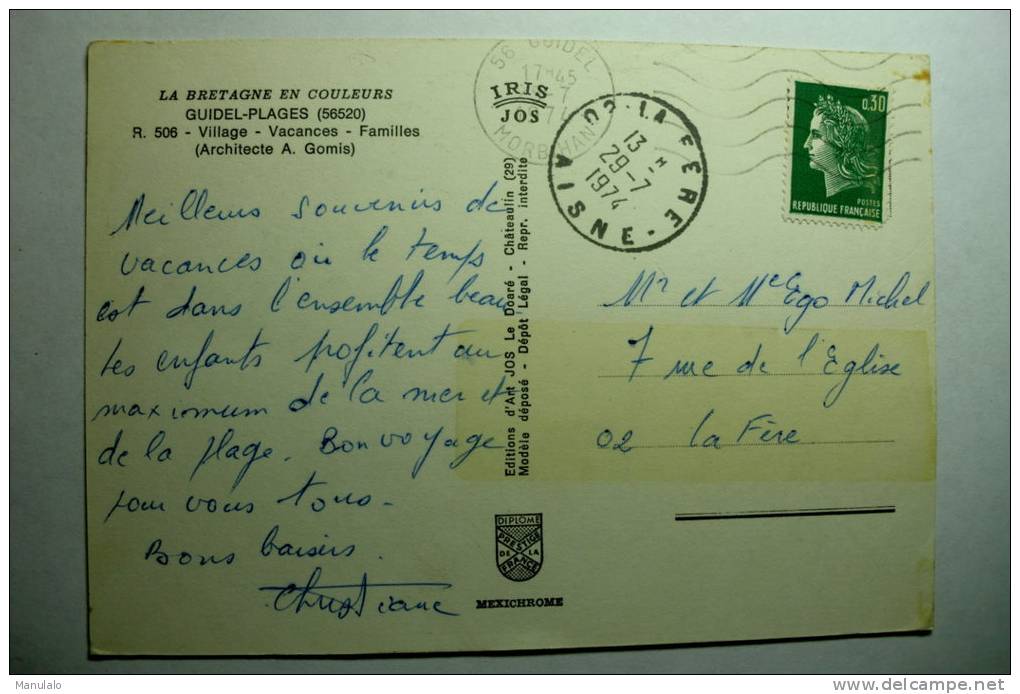 LA BRETAGNE EN COULEURS
GUIDEL-PLAGES (56520)
R. 506 - Village - Vacances - Familles
(Architecte A. Gomis)
Meilleurs souvenirs de
vacances où le temps
est dans l'ensemble beau
Les enfants profitent au
maximum de la mer et
de la plage. Bon voyage
pour vous tous.
Bons baisers.
Christiane
IRIS
JOS
56 GUIDEL
17H45
MORBIHAN
02 LA FERE
13 H
29-7
1974
AISNE
0,30
POSTES
REPUBLIQUE FRANÇAISE
Editions d'Art JOS Le Doaré - Châteaulin (29)
Modèle déposé - Dépôt Légal - Repr. interdite
Mr et Me Ego Michel
7 rue de l'Eglise
02 La Fère
DIPLOME
PRESTIGE
DE LA
FRANCE
MEXICHROME
Manulalo
delcampe.net